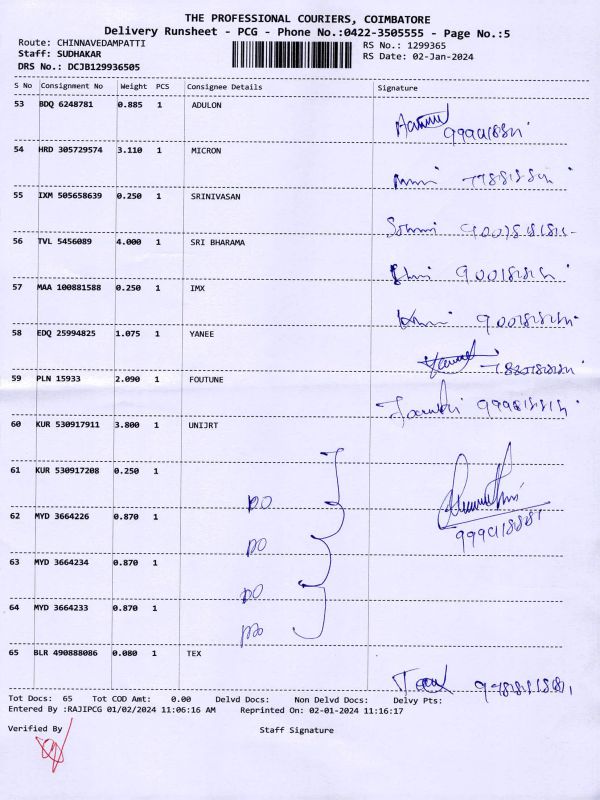 THE PROFESSIONAL COURIERS, COIMBATORE
Delivery Runsheet - PCG - Phone No.:0422-3505555 - Page No.:5
Route: CHINNAVEDAMPATTI RS No.: 1299365
Staff: SUDHAKAR RS Date: 02-Jan-2024
DRS No.: DCJB129936505
S No Consignment No Weight PCS Consignee Details Signature
53 BDQ 6248781 0.885 1 ADULON
54 HRD 305729574 3.110 1 MICRON
55 IXM 505658639 0.250 1 SRINIVASAN
56 TVL 5456089 4.000 1 SRI BHARAMA
57 MAA 100881588 0.250 1 IMX
58 EDQ 25994825 1.075 1 YANEE
59 PLN 15933 2.090 1 FOUTUNE
60 KUR 530917911 3.800 1 UNIJRT
61 KUR 530917208 0.250 1
DO
62 MYD 3664226 0.870 1
DO
63 MYD 3664234 0.870 1
DO
64 MYD 3664233 0.870 1
DO
65 BLR 490888086 0.080 1 TEX
Tot Docs: 65 Tot COD Amt: 0.00 Delvd Docs: Non Delvd Docs: Delvy Pts:
Entered By :RAJIPCG 01/02/2024 11:06:16 AM Reprinted On: 02-01-2024 11:16:17
Verified By Staff Signature